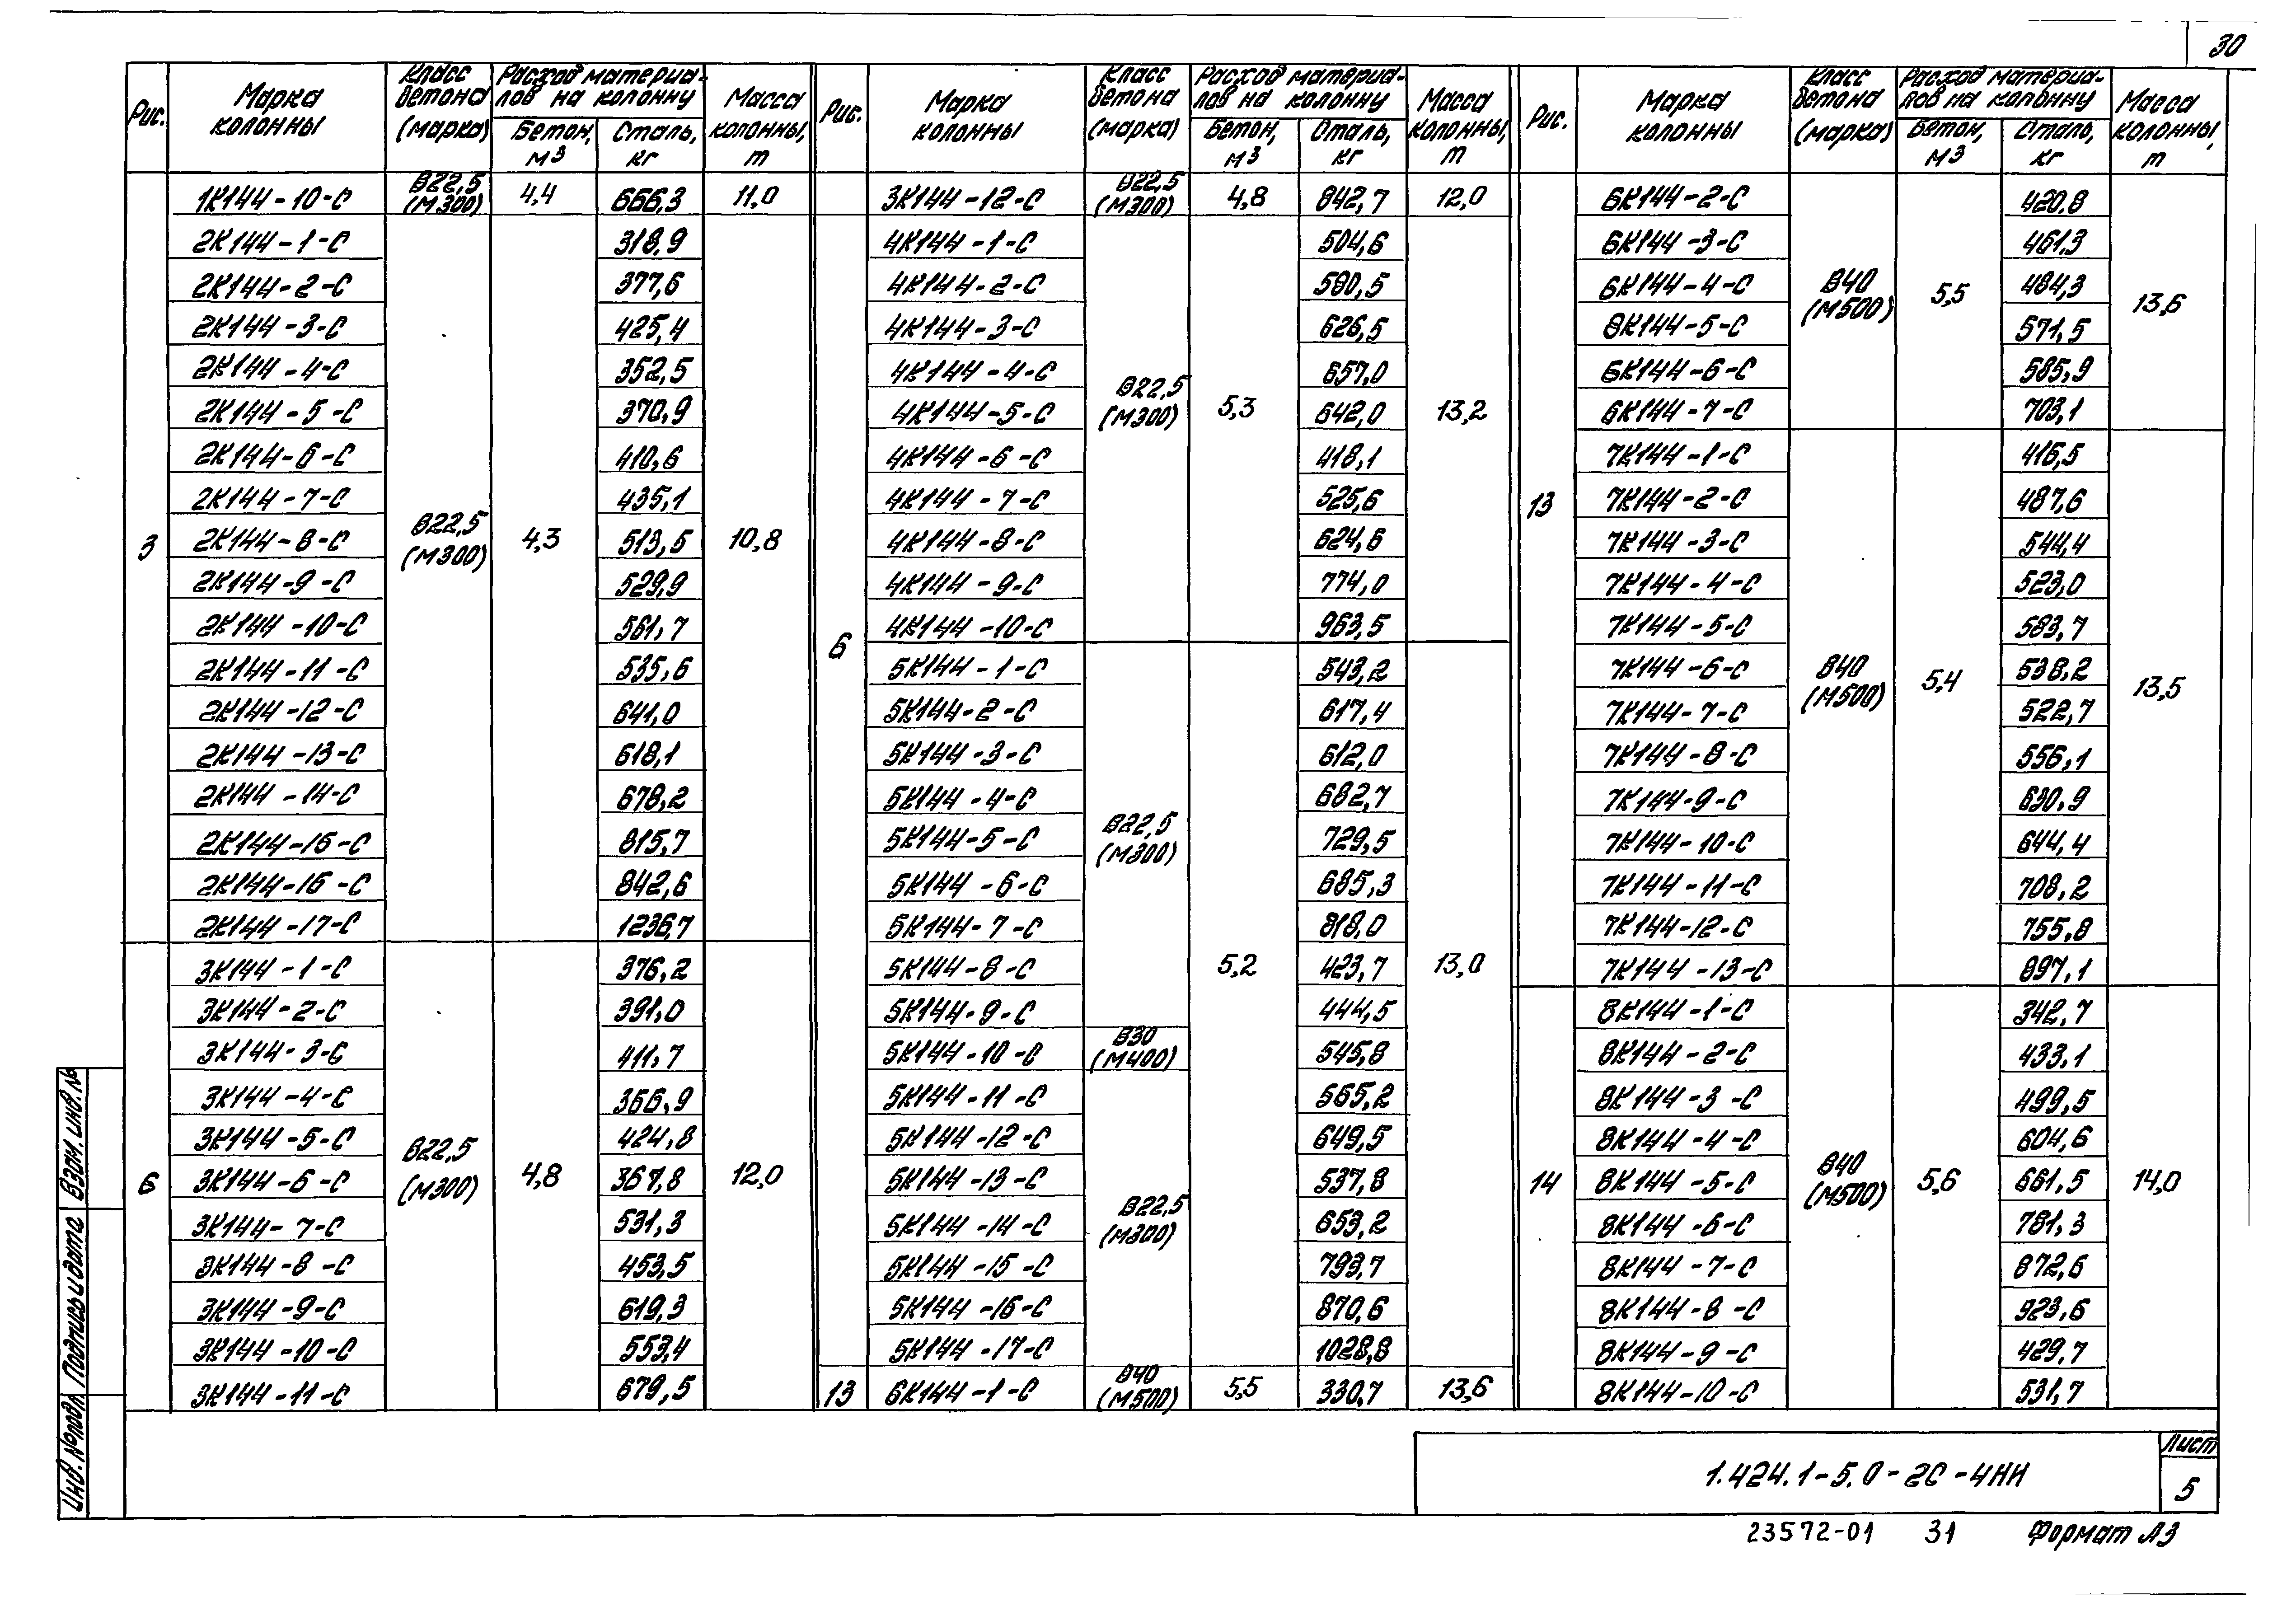 30
Рис. Марка колонны Класс бетона (марка) Расход материалов на колонну Бетон, м3 Сталь, кг Масса колонны, т
3 1К144-10-С В22,5 (М300) 4,4 666,3 11,0
2К144-1-С 318,9
2К144-2-С 377,6
2К144-3-С 425,4
2К144-4-С 352,5
2К144-5-С 370,9
2К144-6-С 410,6
2К144-7-С 435,1
2К144-8-С В22,5 (М300) 4,3 513,5 10,8
2К144-9-С 529,9
2К144-10-С 561,7
2К144-11-С 535,6
2К144-12-С 641,0
2К144-13-С 618,1
2К144-14-С 678,2
2К144-15-С 815,7
2К144-16-С 842,6
2К144-17-С 1236,7
3К144-1-С 376,2
3К144-2-С 391,0
3К144-3-С 411,7
3К144-4-С 366,9
3К144-5-С 424,8
6 3К144-6-С В22,5 (М300) 4,8 367,8 12,0
3К144-7-С 531,3
3К144-8-С 453,5
3К144-9-С 619,3
3К144-10-С 553,4
3К144-11-С 679,5
Рис. Марка колонны Класс бетона (марка) Расход материалов на колонну Бетон, м3 Сталь, кг Масса колонны, т
6 3К144-12-С В22,5 (М300) 4,8 842,7 12,0
4К144-1-С 504,6
4К144-2-С 580,5
4К144-3-С 626,5
4К144-4-С 657,0
4К144-5-С В22,5 (М300) 5,3 642,0 13,2
4К144-6-С 418,1
4К144-7-С 525,6
4К144-8-С 624,6
4К144-9-С 774,0
4К144-10-С 963,5
5К144-1-С 543,2
5К144-2-С 617,4
5К144-3-С 612,0
5К144-4-С 682,7
5К144-5-С В22,5 (М300) 729,5
5К144-6-С 685,3
5К144-7-С 818,0
5К144-8-С 5,2 423,7 13,0
5К144-9-С 444,5
5К144-10-С В30 (М400) 545,8
5К144-11-С 565,2
5К144-12-С 649,5
5К144-13-С 537,8
5К144-14-С В22,5 (М300) 653,2
5К144-15-С 793,7
5К144-16-С 870,6
5К144-17-С 1028,8
13 6К144-1-С В40 (М500) 5,5 330,7 13,6
Рис. Марка колонны Класс бетона (марка) Расход материалов на колонну Бетон, м3 Сталь, кг Масса колонны, т
13 6К144-2-С 420,8
6К144-3-С 461,3
6К144-4-С В40 (М500) 5,5 484,3 13,6
6К144-5-С 571,5
6К144-6-С 585,9
6К144-7-С 703,1
7К144-1-С 416,5
7К144-2-С 487,6
7К144-3-С 544,4
7К144-4-С 523,0
7К144-5-С 583,7
7К144-6-С В40 (М500) 5,4 538,2 13,5
7К144-7-С 522,7
7К144-8-С 556,1
7К144-9-С 630,9
7К144-10-С 644,4
7К144-11-С 708,2
7К144-12-С 755,8
7К144-13-С 897,1
8К144-1-С 342,7
8К144-2-С 433,1
8К144-3-С 499,5
8К144-4-С 604,6
14 8К144-5-С В40 (М500) 5,6 661,5 14,0
8К144-6-С 781,3
8К144-7-С 872,6
8К144-8-С 923,6
8К144-9-С 429,7
8К144-10-С 531,7
Инв. № подл. Подпись и дата Взам. инв. №
1.424.1-5.0-2С-4НИ
Лист
5
23572-01 31 Формат А3